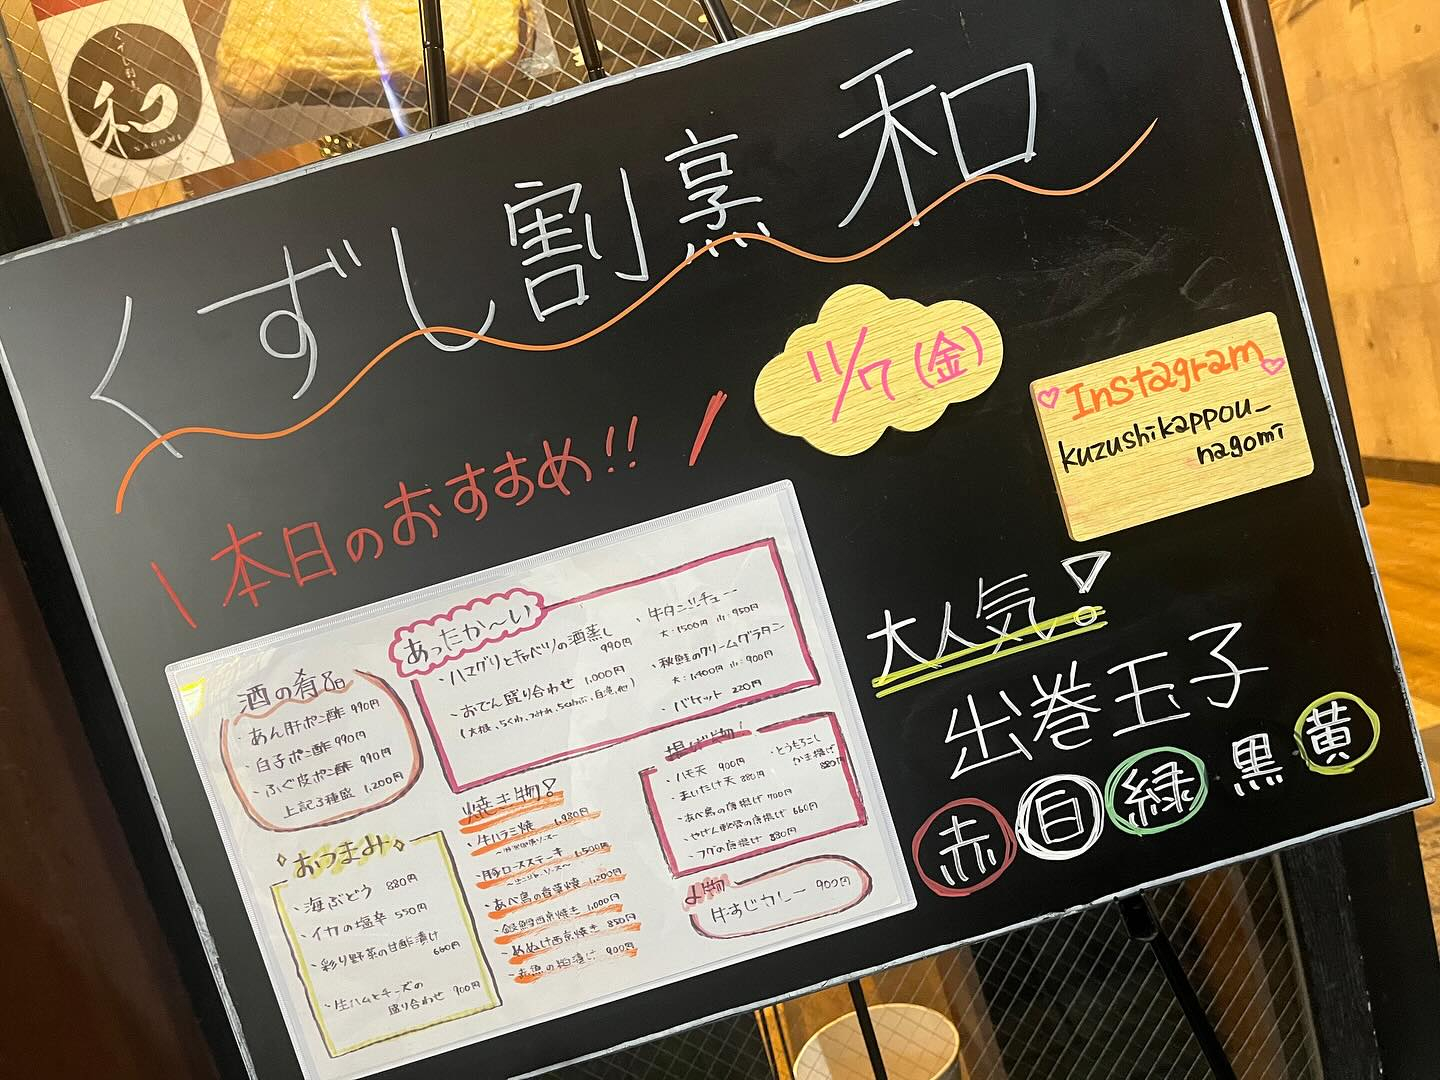 くずし割烹
和
NAGOMI
くずし割烹 和
11/7(金)
\ 本日のおすすめ!! /
Instagram
kuzushikappou_
nagomi
酒の肴8日
・あん肝ポン酢 990円
・白子ポン酢 990円
・ふぐ皮ポン酢 990円
上記3種盛 1,200円
あったか〜い
・ハマグリとキャベツの酒蒸し
990円
・おでん盛り合わせ 1,000円
(大根、ちくわ、つみれ、ちくわぶ、白滝、他)
・牛タンシチュー
大:1500円 小:950円
・秋鮭のクリームグラタン
大:1,400円 小:900円
・バケット 220円
◇おつまみ◇
・海ぶどう 880円
・イカの塩辛 550円
・彩り野菜の甘酢漬け
660円
・生ハムとチーズの
盛り合わせ 900円
焼き物!
・牛ハラミ焼 1,980円
・豚ロースステーキ 1,500円
・あべ鳥の香草焼 1,200円
・銀鱈西京焼き 1,000円
・めぬけ西京焼き 850円
・赤魚の粕漬け 900円
揚げ物!
・ハモ天 900円
・まいたけ天 880円
・あべ鳥の唐揚げ 700円
・やげん軟骨の唐揚げ 660円
・フグの唐揚げ 880円
・とうもろこし
かき揚げ
880円
〆物
牛すじカレー 900円
大人気!
出巻玉子
赤 白 緑 黒 黄